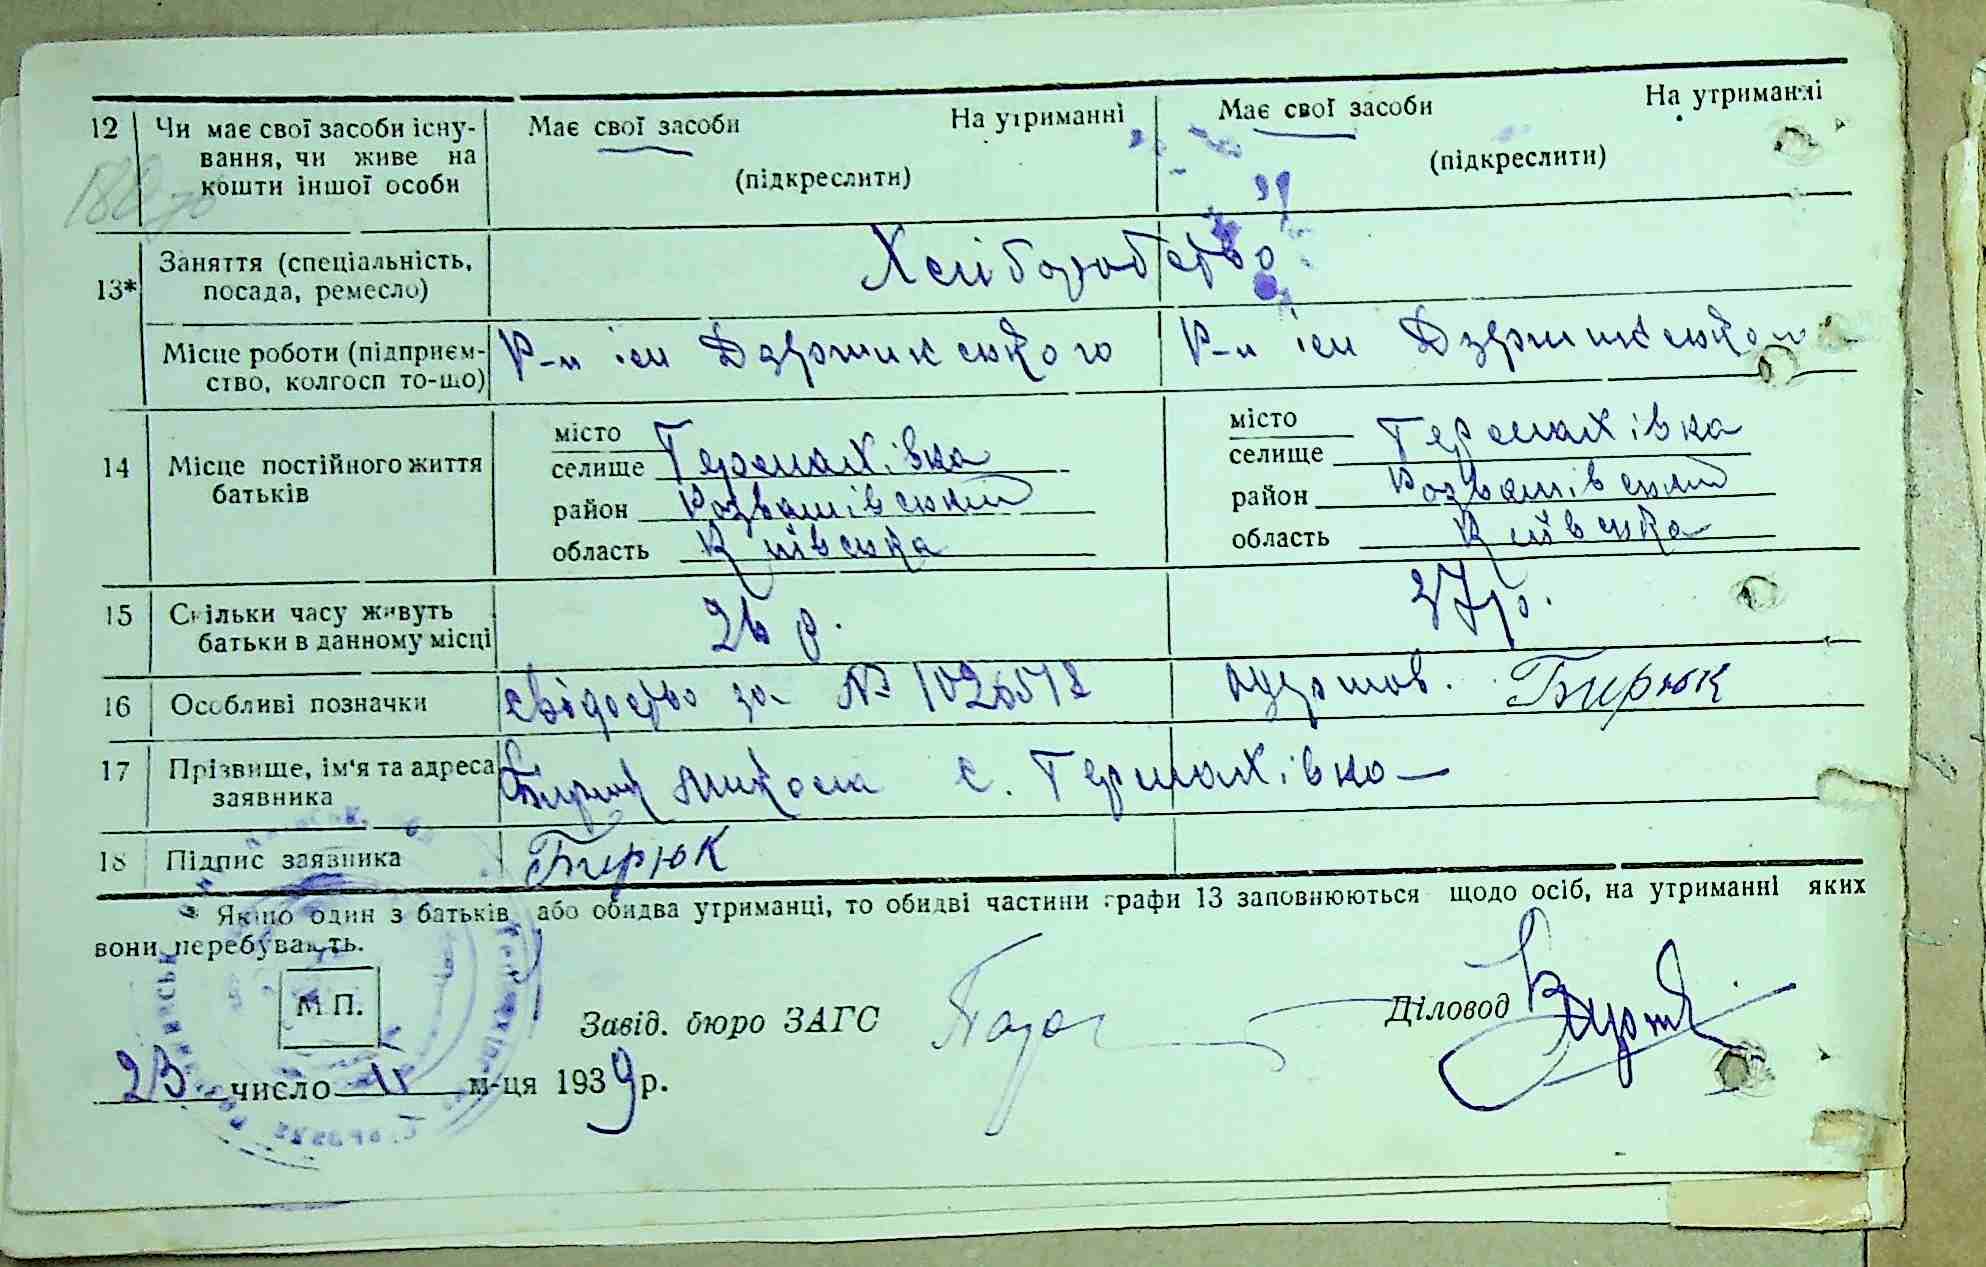 12 Чи має свої засоби існу- Має свої засоби На утриманні Має свої засоби На утриманні
вання, чи живе на (підкреслити) (підкреслити)
кошти іншої особи
Заняття (спеціальність, Хліборобство
13* посада, ремесло)
Місце роботи (підприєм- К-п ім Дзержинського К-п ім Дзержинського
ство, колгосп то-що)
місто місто
14 Місце постійного життя селище Термахівка селище Термахівка
батьків район Розважівський район Розважівський
область Київська область Київська
15 Скільки часу живуть 26 р. 27 р.
батьки в данному місці
16 Особливі позначки свідоство за № одержав. Бирюк
17 Прізвище, ім'я та адреса Бирюк Микола с. Термахівка
заявника
18 Підпис заявника Бирюк
* Якщо один з батьків або обидва утриманці, то обидві частини графи 13 заповнюються щодо осіб, на утриманні яких
вони перебувають.
М П.
Завід. бюро ЗАГС Діловод
23 число II м-ця 1939 р.